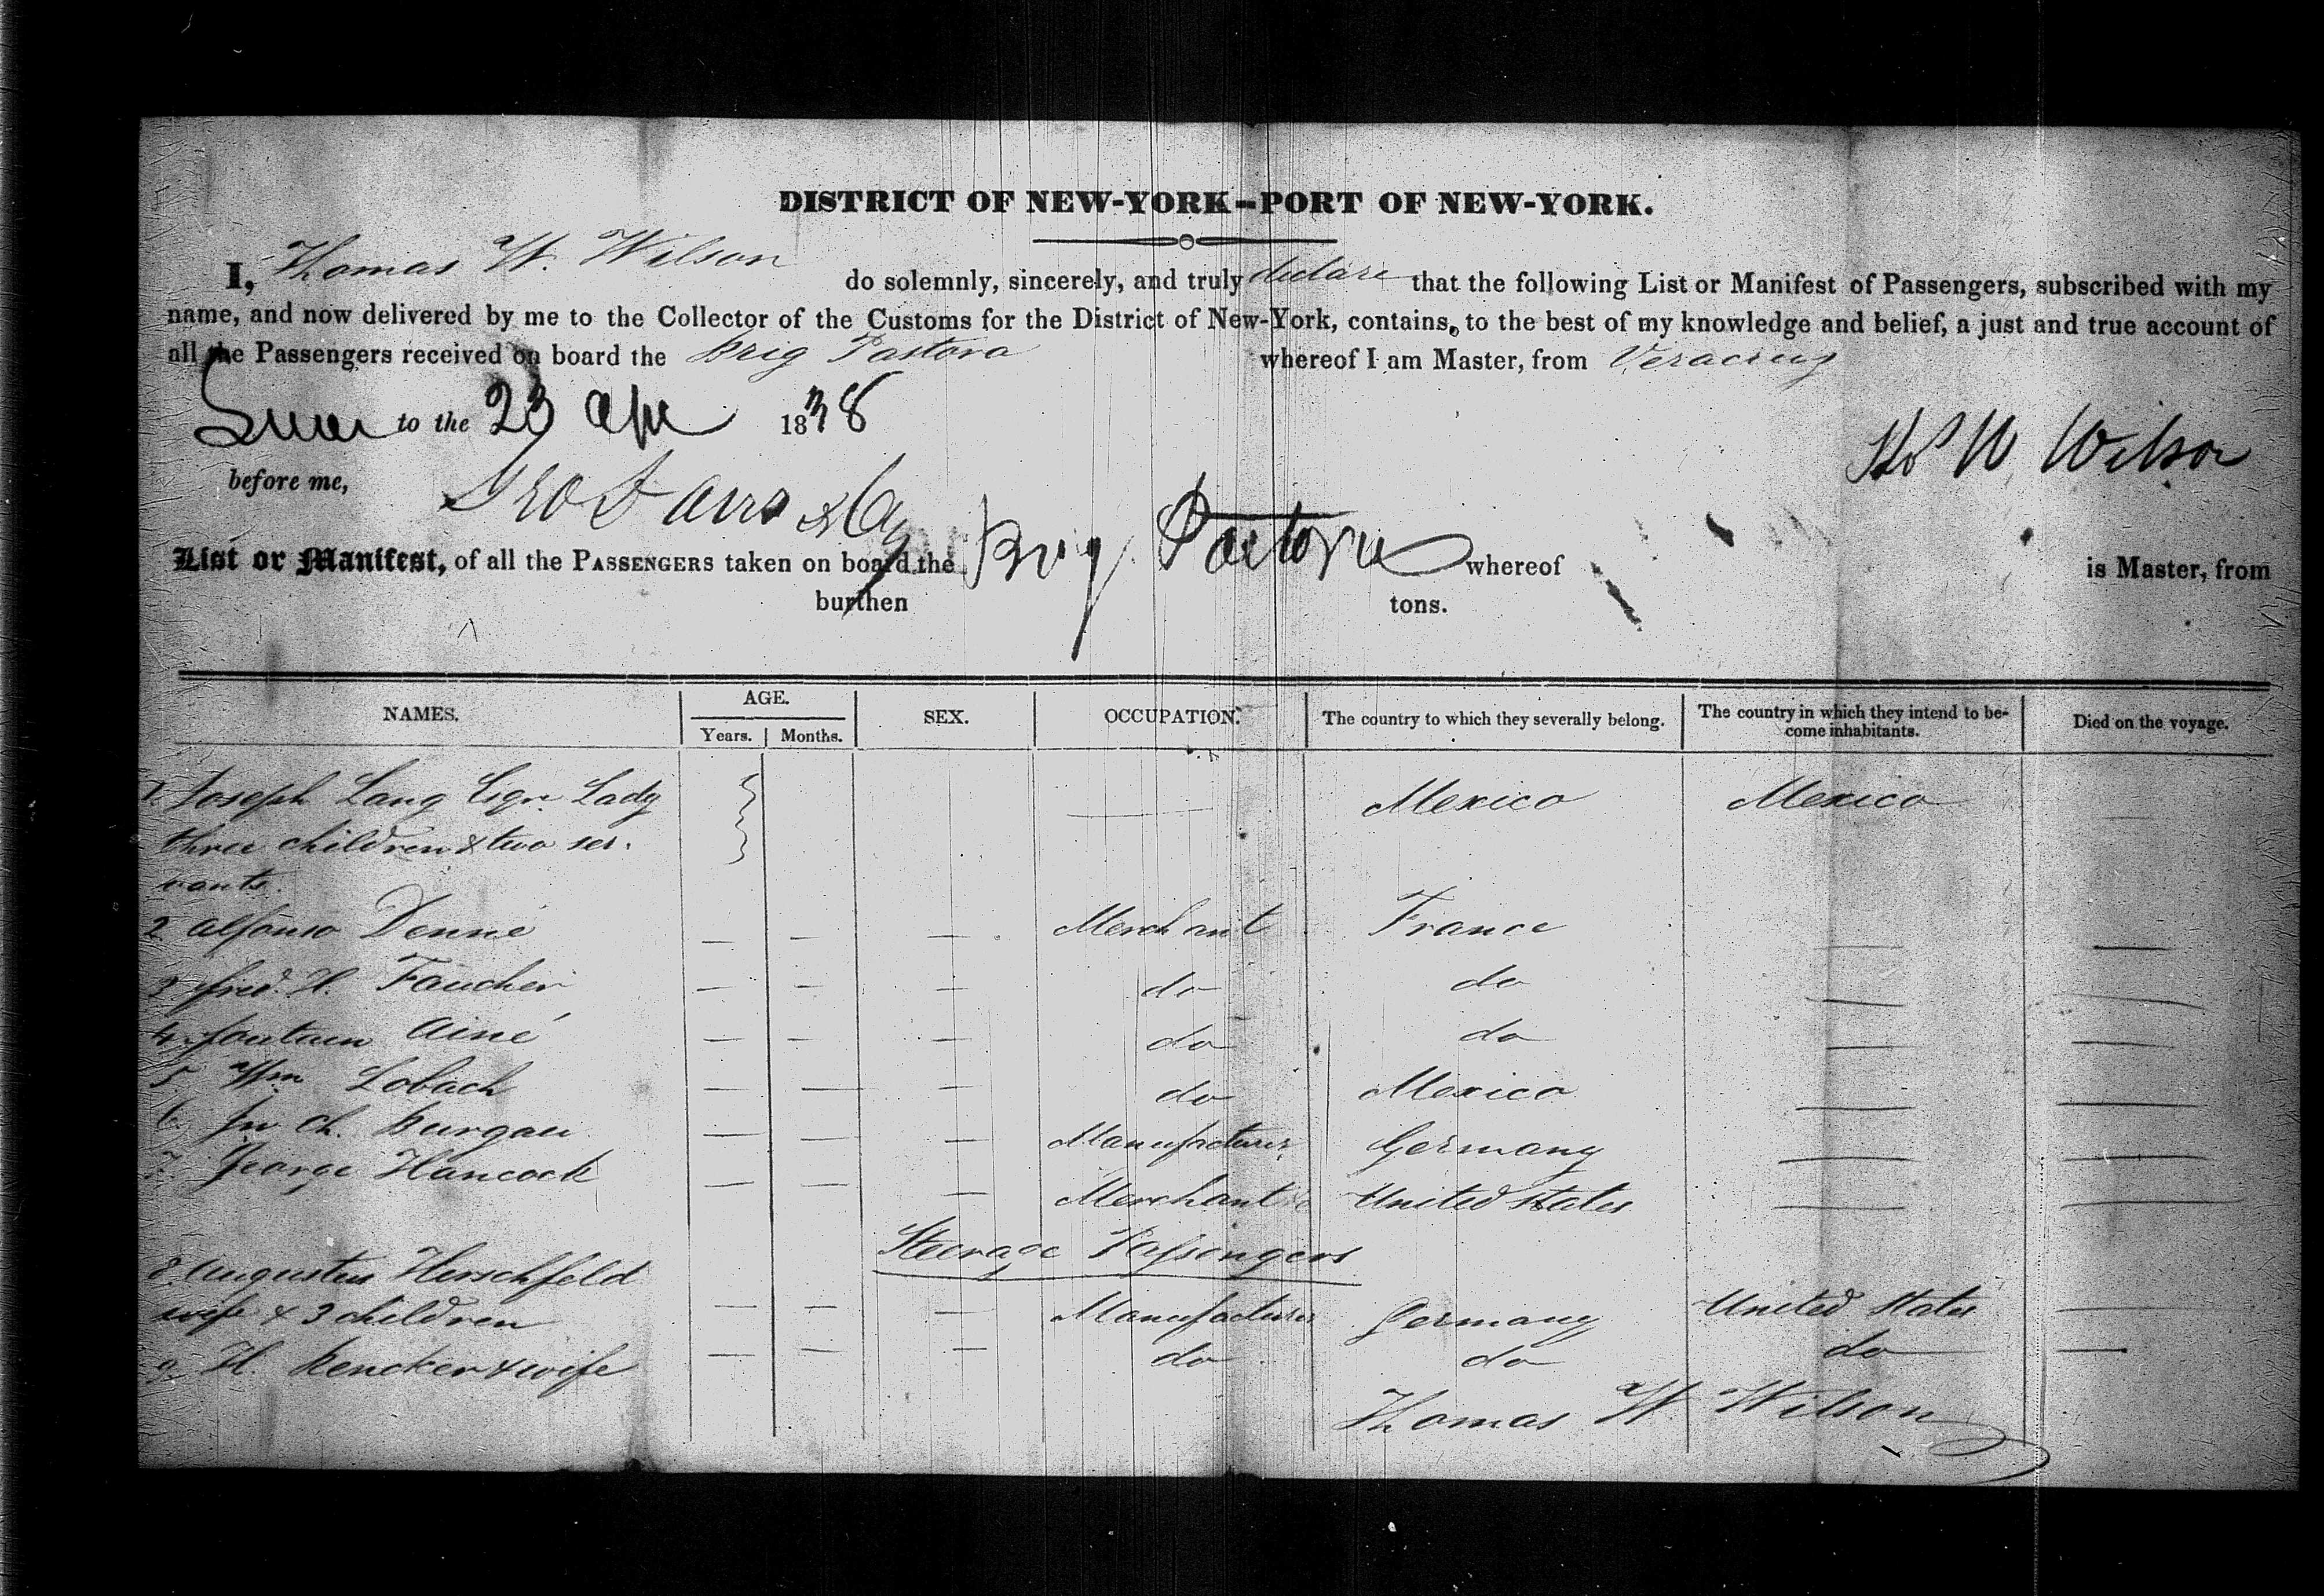 DISTRICT OF NEW-YORK--PORT OF NEW-YORK.
I, Thomas W. Wilson do solemnly, sincerely, and truly declare that the following List or Manifest of Passengers, subscribed with my
name, and now delivered by me to the Collector of the Customs for the District of New-York, contains, to the best of my knowledge and belief, a just and true account of
all the Passengers received on board the Brig Pastora whereof I am Master, from Veracruz
to the 23 Apl 1838
Ths W Wilson
before me,
List or Manifest, of all the PASSENGERS taken on board the Brig Pastora whereof is Master, from
burthen tons.
NAMES. AGE. SEX. OCCUPATION. The country to which they severally belong. The country in which they intend to be-
come inhabitants. Died on the voyage.
Years. Months.
1. Joseph Lang Esqr. Lady Mexico Mexico
three children & two ser-
vants.
2 Alfonso Denné Merchant France
3 Fred. H. Faucher do do
4 Ainé do do
5 Wm Lobach do Mexico
6 Jn Ch. Burgau Manufacturer Germany
7. George Hancock Merchant United States
Steerage Passengers
8. Augustus Herschfeld
wife & 3 children Manufacturer Germany United States
9 H. Rencker & wife do do do
Thomas W Wilson